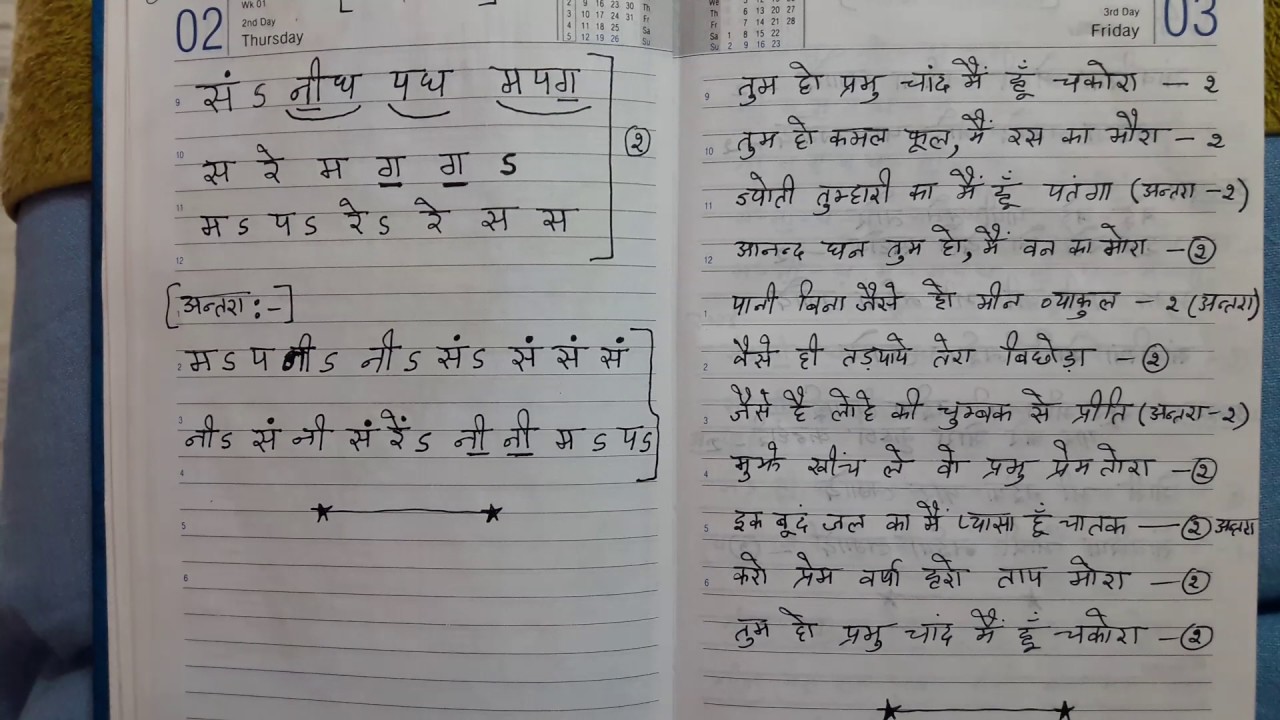 02
Wk 01
2nd Day
Thursday
2 9 16 23 30 Th
3 10 17 24 31 Fr
4 11 18 25 Sa
5 12 19 26 Su
9 सं ऽ नी॒ध पध मपग॒
10 स रे म ग॒ ग॒ ऽ
11 म ऽ प ऽ रे ऽ रे स स
②
12
[अन्तरा :-]
2 म ऽ प नी ऽ नी ऽ सं ऽ सं सं सं
3 नी ऽ सं नी सं रें ऽ नी॒ नी॒ म ऽ प ऽ
4
5
6
We 6 13 20 27
Th 7 14 21 28
Fr
Sa 1 8 15 22
Su 2 9 16 23
3rd Day
Friday
03
9 तुम हो प्रभु चांद मैं हूँ चकोरा - २
10 तुम हो कमल फूल, मैं रस का भौरा - २
11 ज्योती तुम्हारी का मैं हूँ पतंगा (अन्तरा - २)
12 आनन्द घन तुम हो, मैं वन का मोरा - ②
1 पानी बिना जैसे हो मीन व्याकुल - २ (अन्तरा)
2 वैसे ही तड़पाये तेरा बिछोड़ा - ②
3 जैसे है लोहे की चुम्बक से प्रीति (अन्तरा - २)
4 मुझे खींच ले वो प्रभु प्रेम तोरा - ②
5 इक बूदं जल का मैं प्यासा हूँ चातक - ② अन्तरा
6 करो प्रेम वर्षा हरो ताप मोरा - ②
तुम हो प्रभु चांद मैं हूँ चकोरा - ②